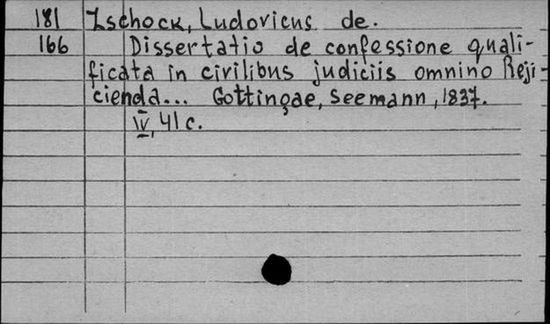 181 Zschock, Ludovicus de.
166 Dissertatio de confessione quali-
ficata in civilibus judiciis omnino Reji-
cienda... Gottingae, Seemann, 1837.
IV, 41 c.